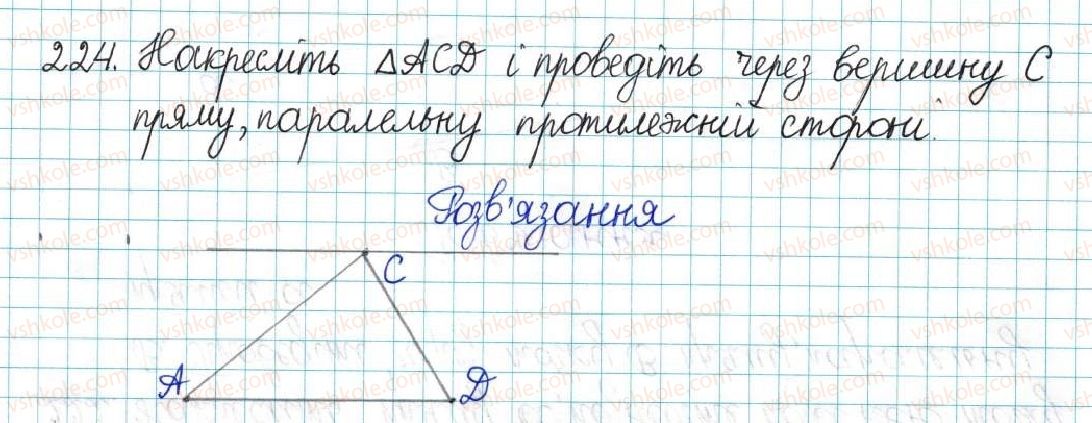 224. Накресліть △ACD і проведіть через вершину C
пряму, паралельну протилежній стороні.
Розв'язання
C
A D